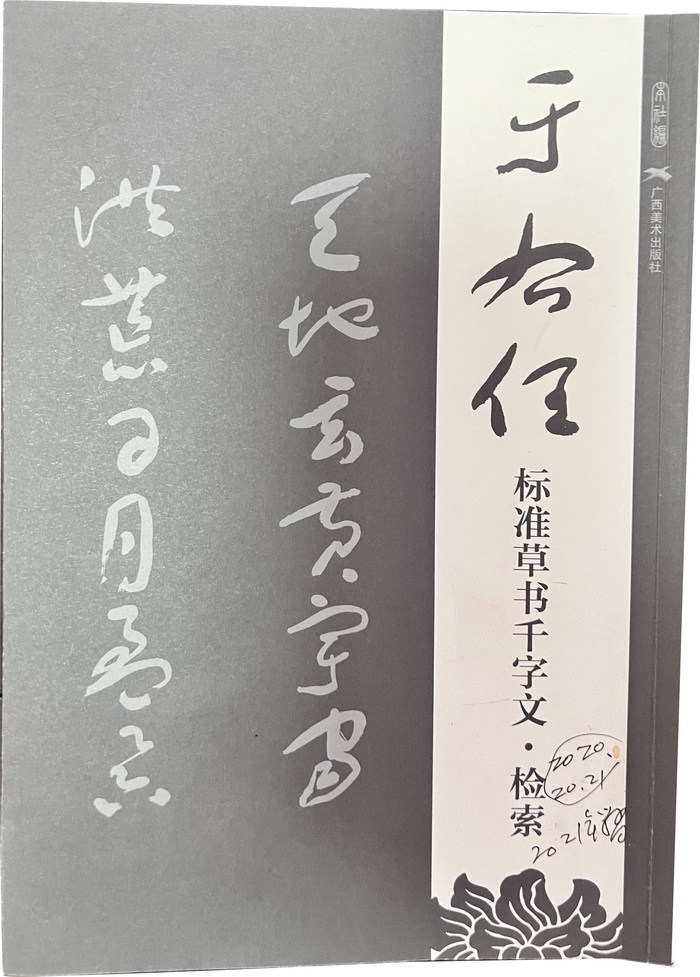 于右任
标准草书千字文·检索
天地玄黄宇宙
洪荒日月盈昃
本社编
广西美术出版社
2020.
20.21
2021年